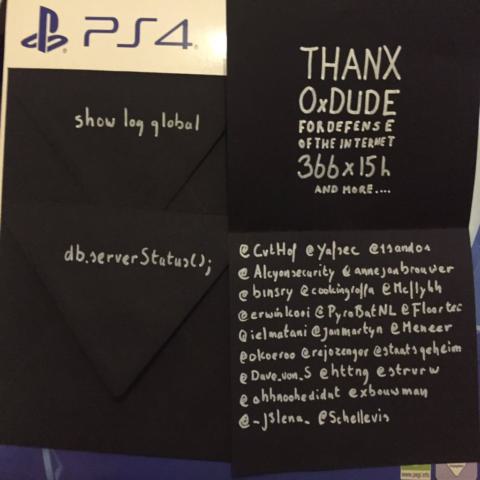 PS4
show log global
db.serverStatus();
THANX
0xDUDE
FOR DEFENSE
OF THE INTERNET
366x15h
AND MORE....
@CvtHof @Yafsec @1sand0s
@Alcyonsecurity @annejanbrouwer
@binsry @cookingroffa @Mcflyhh
@erwinkooi @PyroBatNL @Floortec
@ielmatani @janmartyn @Meneer
@okoeroo @rejozenger @staatsgeheim
@Dave_von_S @httng @strvrw
@ohhnoohedidnt @xbouwman
@_jslena_ @Schellevis
www.pegi.info